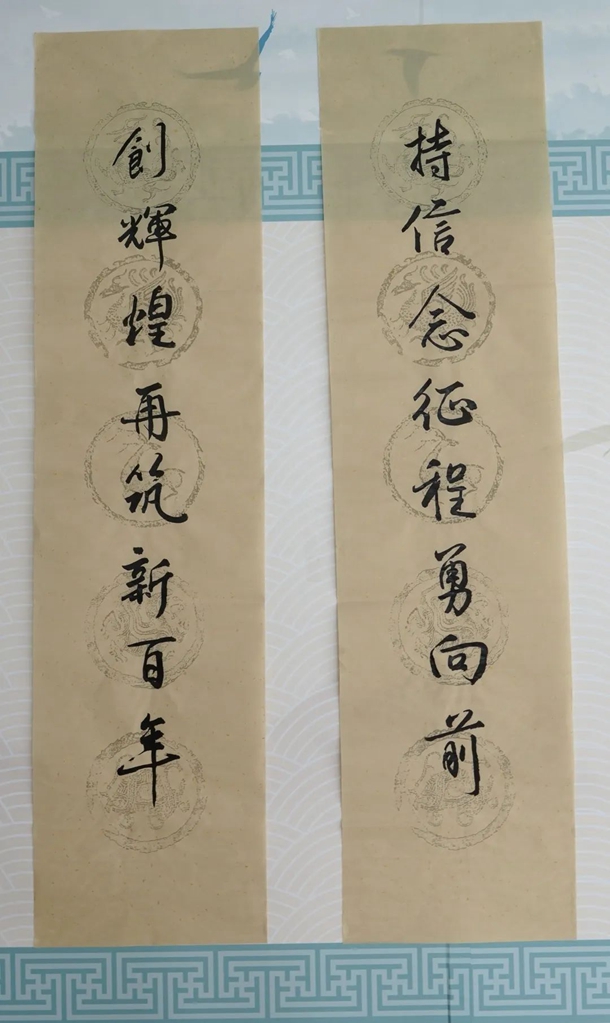 持信念征程勇向前
創輝煌再筑新百年